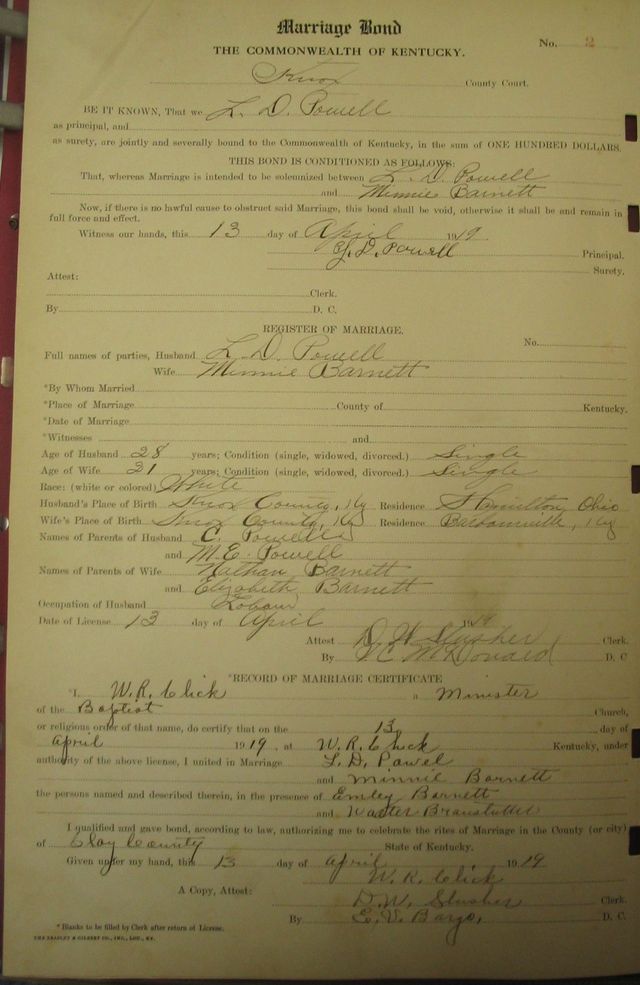 Marriage Bond
THE COMMONWEALTH OF KENTUCKY. No. 2
Knox County Court.
BE IT KNOWN, That we L. D. Powell
as principal, and
as surety, are jointly and severally bound to the Commonwealth of Kentucky, in the sum of ONE HUNDRED DOLLARS.
THIS BOND IS CONDITIONED AS FOLLOWS:
That, whereas Marriage is intended to be solemnized between L. D. Powell
and Minnie Barnett
Now, if there is no lawful cause to obstruct said Marriage, this bond shall be void, otherwise it shall be and remain in
full force and effect.
Witness our hands, this 13 day of April 1919.
L. D. Powell Principal.
Surety.
Attest:
Clerk.
By D. C.
REGISTER OF MARRIAGE.
No.
Full names of parties, Husband L. D. Powell
Wife Minnie Barnett
*By Whom Married
*Place of Marriage County of Kentucky.
*Date of Marriage
*Witnesses and
Age of Husband 28 years; Condition (single, widowed, divorced.) Single
Age of Wife 21 years; Condition (single, widowed, divorced.) Single
Race: (white or colored) White
Husband's Place of Birth Knox County, Ky Residence Hamilton, Ohio
Wife's Place of Birth Knox County, Ky Residence Barbourville, Ky
Names of Parents of Husband C. Powell
and M. E. Powell
Names of Parents of Wife Nathan Barnett
and Elizabeth Barnett
Occupation of Husband Labour
Date of License 13 day of April 1919
Attest D. W. Slusher Clerk.
By McDonald D. C
*RECORD OF MARRIAGE CERTIFICATE
*I, W. R. Click a Minister
of the Baptist Church,
or religious order of that name, do certify that on the 13 day of
April 1919, at W. R. Click Kentucky, under
authority of the above license, I united in Marriage L. D. Powel
and Minnie Barnett
the persons named and described therein, in the presence of Emley Barnett
and Walter
I qualified and gave bond, according to law, authorizing me to celebrate the rites of Marriage in the County (or city)
of Clay County State of Kentucky.
Given under my hand, this 13 day of April, 1919
W. R. Click
A Copy, Attest: D. W. Slusher Clerk.
By E. V. Bargo, D. C.
* Blanks to be filled by Clerk after return of License.
THE BRADLEY & GILBERT CO., INC., LOU., KY.